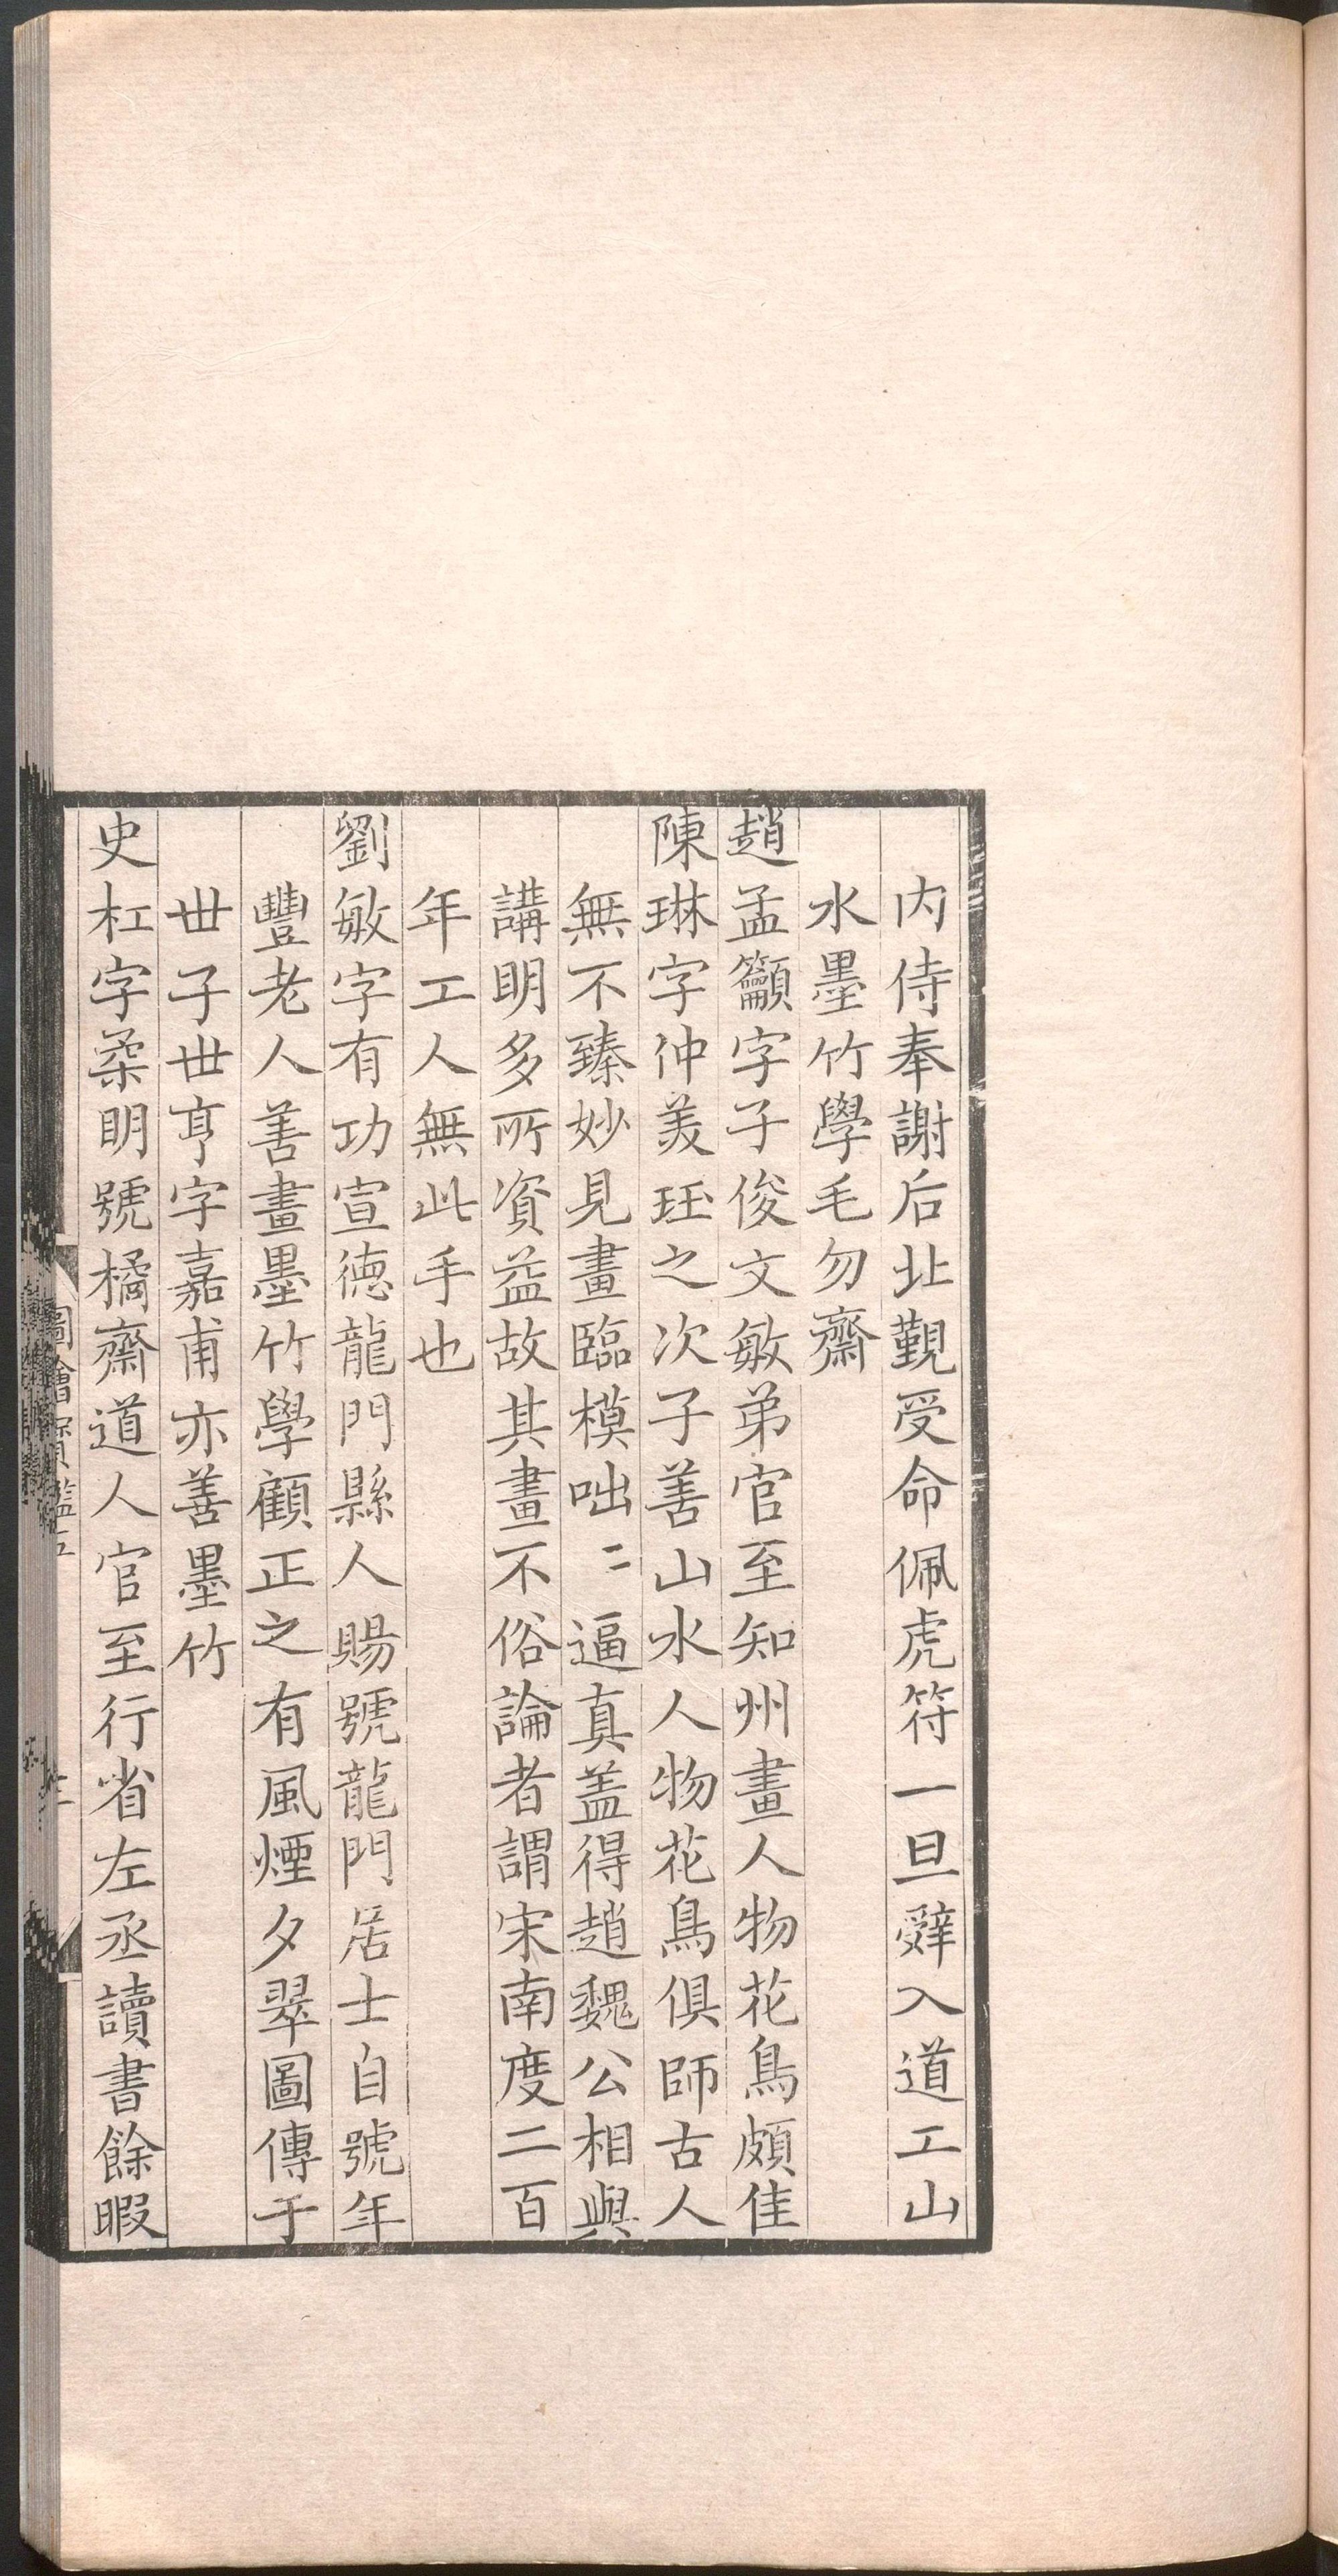 内侍奉謝后北觐受命佩虎符一旦辤入道工山
水墨竹學毛勿齋
趙孟籲字子俊文敏弟官至知州畫人物花鳥頗佳
陳琳字仲美珏之次子善山水人物花鳥俱師古人
無不臻妙見畫臨模咄〻逼真盖得趙魏公相與
講明多所資益故其畫不俗論者謂宋南度二百
年工人無此手也
劉敏字有功宣德龍門縣人賜號龍門居士自號年
豐老人善畫墨竹學顧正之有風煙夕翠圖傳于
世子世亨字嘉甫亦善墨竹
史杠字柔明號橘齋道人官至行省左丞讀書餘暇
圖繪寶鑑五